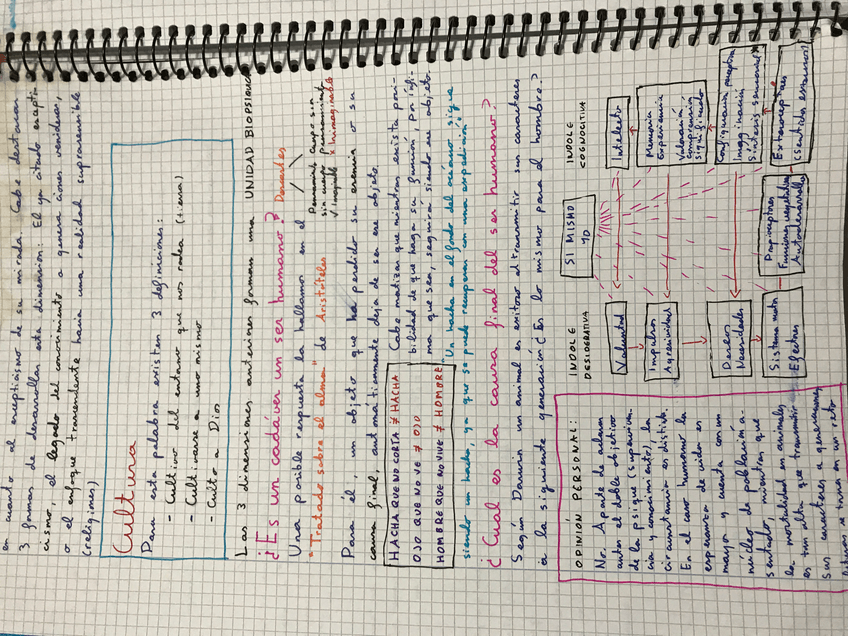 en cuanto al escepticismo de su mirada. Cabe destacar
3 formas de desarrollar esta dimensión: El ya citado escepti-
cismo, el legado del conocimiento a generaciones venideras,
o el enfoque trascendente hacia una realidad suprasensible
(religiones)
Cultura
Para esta palabra existen 3 definiciones:
- Cultivo del entorno que nos rodea (tierra)
- Cultivarse a uno mismo
- Culto a Dios
Las 3 dimensiones anteriores forman una UNIDAD BIOPSIOHCU
¿Es un cadáver un ser humano? Descartes
Una posible respuesta la hallamos en el
"Tratado sobre el alma" de Aristóteles
Pensamient sin cuerpo √ imaginable
Cuerpo sin Pensamiento x Inimaginable
Para él, un objeto que ha perdido su esencia o su
causa final, automáticamente deja de ser ese objeto
HACHA QUE NO CORTA ≠ HACHA
OJO QUE NO VE ≠ OJO
HOMBRE QUE NO VIVE ≠ HOMBRE
Cabe matizar que mientras exista posi-
bilidad de que haga su función, por ínfi-
ma que sea, seguirá siendo ese objeto
"Un hacha en el fondo del océano sigue
siendo un hacha, ya que se puede recuperar con una expedición"
¿Cuál es la causa final del ser humano?
Según Darwin un animal es exitoso al transmitir sus caracteres
a la siguiente generación ¿Es lo mismo para el hombre?
OPINIÓN PERSONAL:
No. A parte de adem
antes el doble objetivo
de la psique (superviven
cia y conocimiento), la
circunstancia es distinta.
En el caso humano la
esperanza de vida es
mayor y cuenta con un
núcleo de población a-
sentado, mientras que
la mortalidad en animales
es tan alta que transmitir
sus caracteres a generaciones
futuras se torna en un reto
INDOLE
DESIDERATIVA
Voluntad
Impulsos
Agresividad
Deseos
Necesidades
Sistema motor
Efectores
SI MISMO
YO
Propioceptores
Funciones vegetativas
Autodesarrollo
INDOLE
COGNOCITIVA
Intelecto
Memoria
Experiencia
Valoración
Comprensión
Significado
Configuración perceptiva
Imaginación
Síntesis sensorial
Exteroceptores
(Sentidos externos)